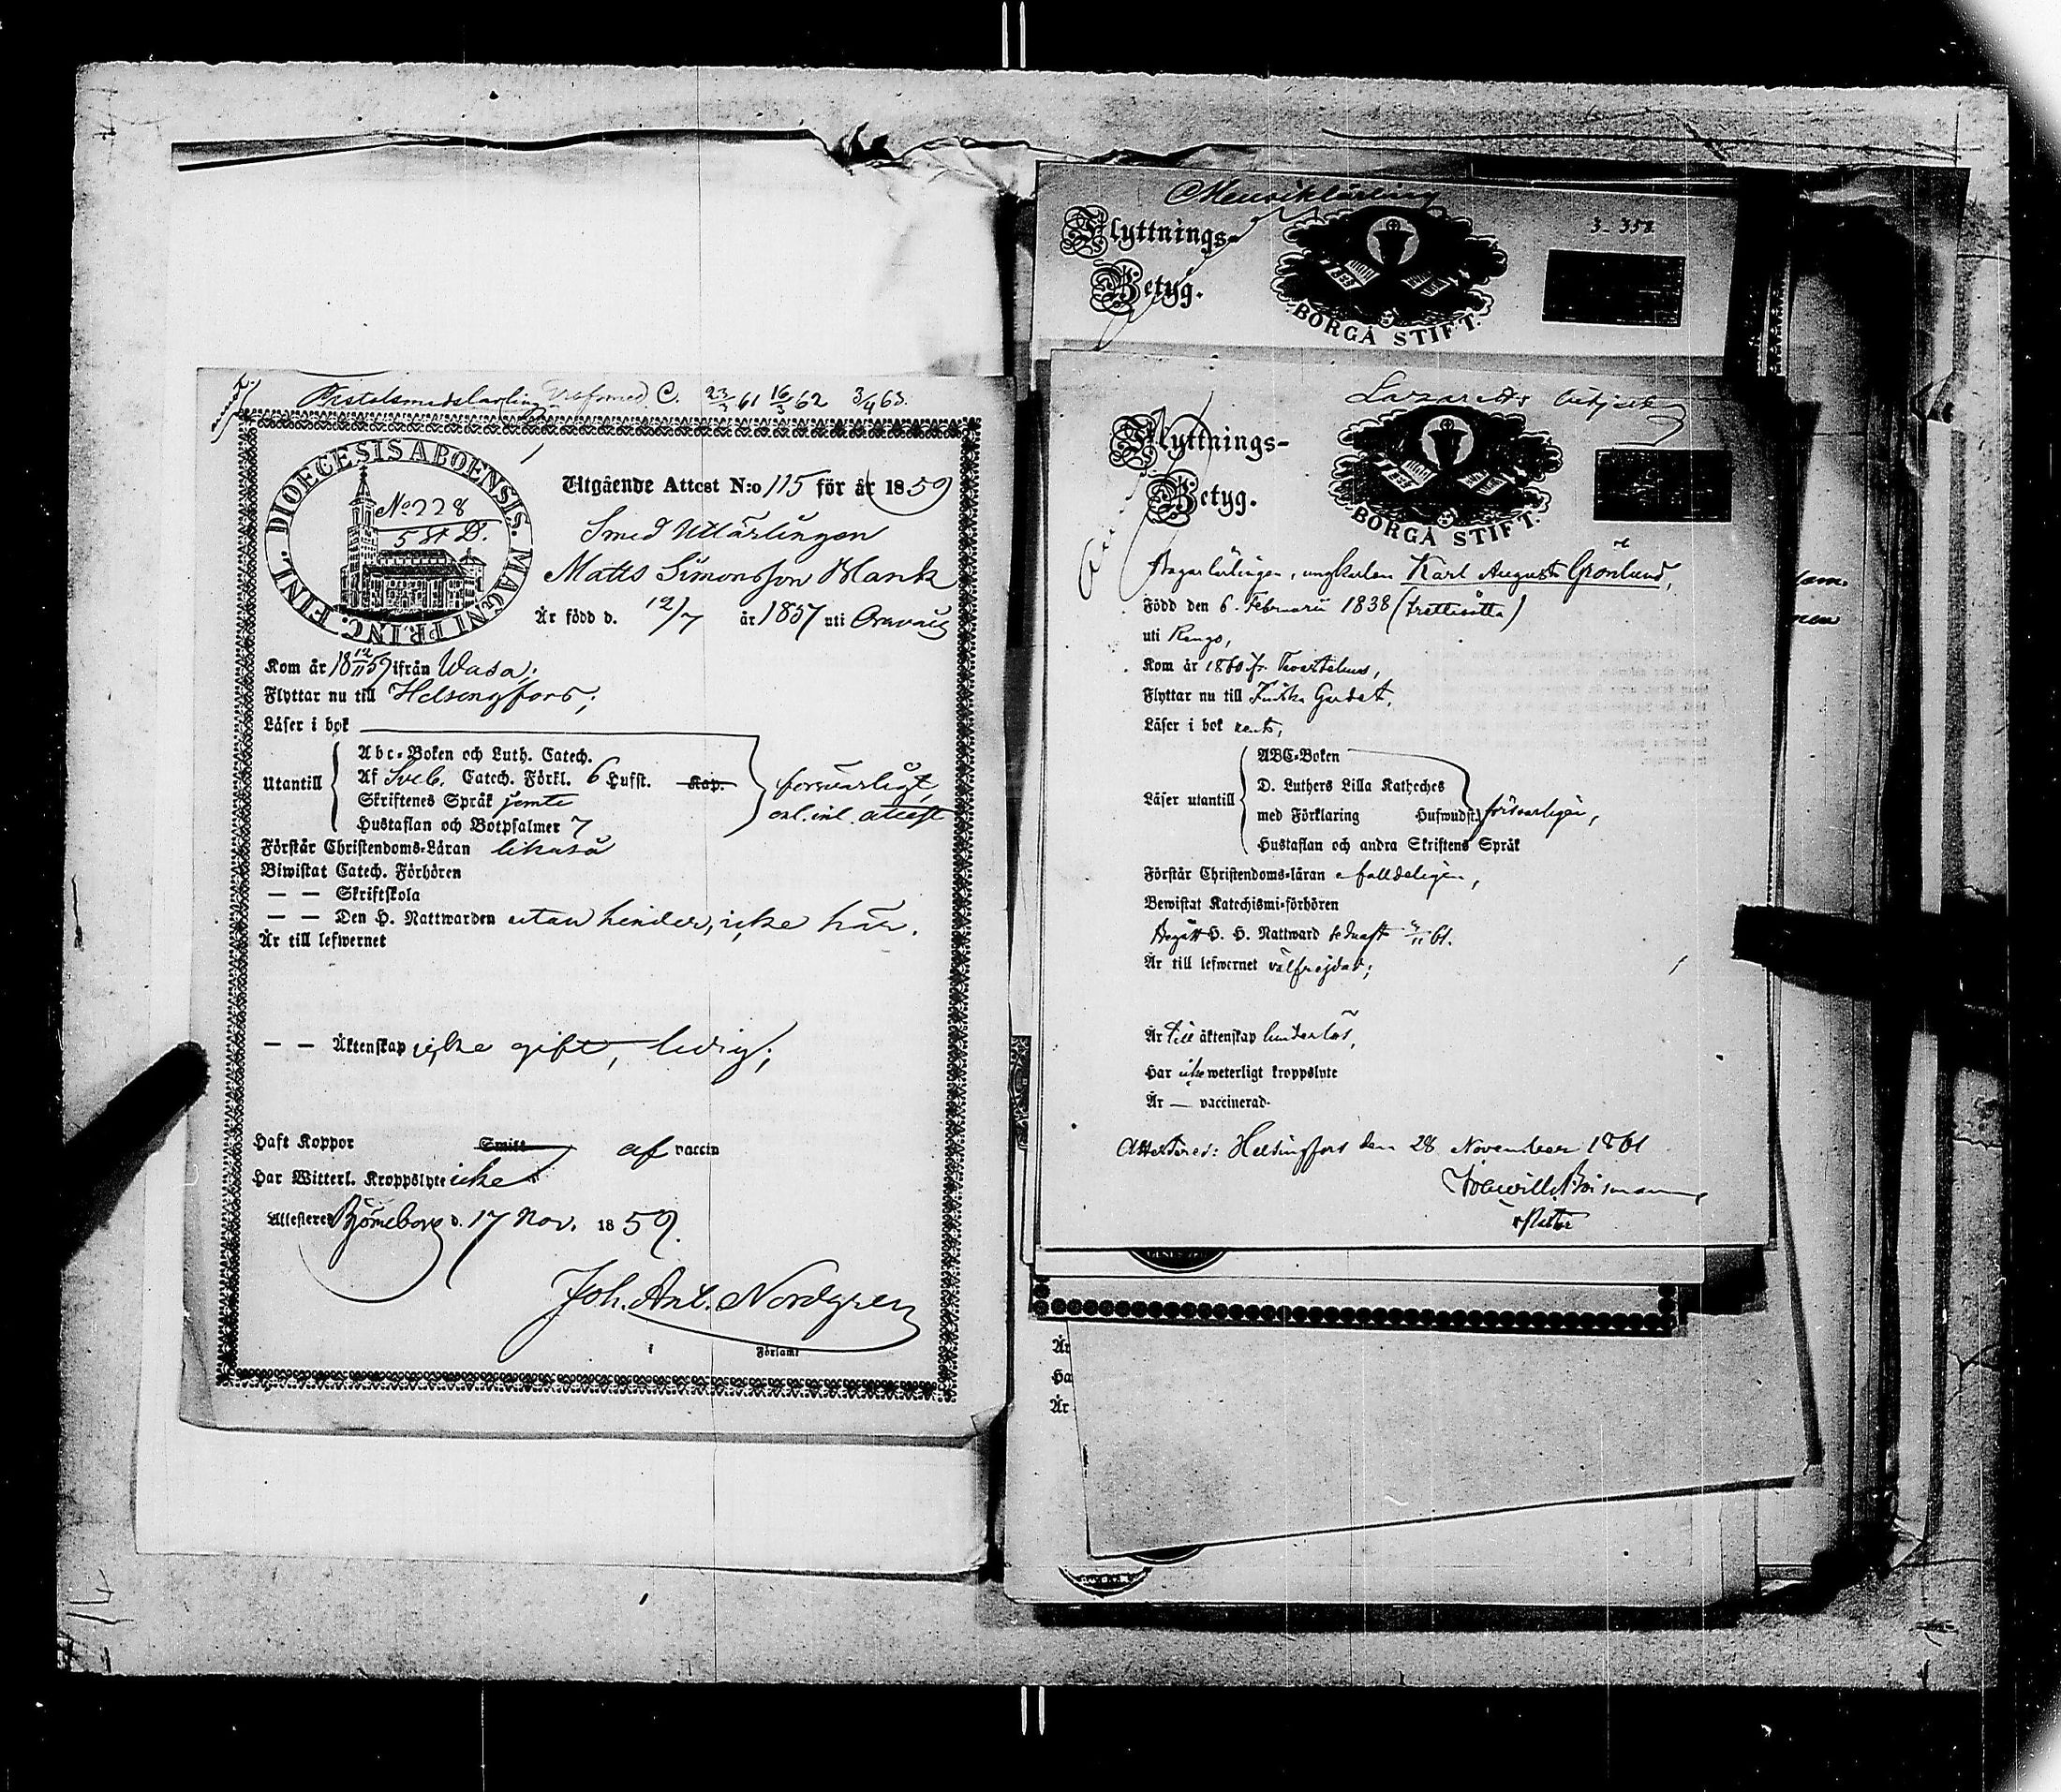 C. 23/3 61 16/3 62 3/4 63.
DIOECESIS ABOENSIS. MAGNI PR.INC. FINL.
No 228
5 st D.
Utgående Attest N:o 115 för år 1859
Smed Utlärlingen
Matts Simonsson Blank
Är född d. 12/7 år 1837 uti Oravais
Kom år 18 12/11 59 ifrån Wasa;
Flyttar nu till Helsingfors;
Läser i bok
Utantill
Abc-Boken och Luth. Catech.
Af Sveb. Catech. Förkl. 6 Hufst. Kap.
Skriftenes Språk jemte
Hustaflan och Botpsalmer 7
försvarligt,
enl. inl. attest
Förstår Christendoms-Läran likaså
Biwistat Catech. Förhören
— — Skriftskola
— — Den H. Nattwarden utan hinder, icke här.
Är till lefwernet
— — Äktenskap icke gift, ledig;
Haft Koppor Smitt af vaccin
Har Witterl. Kroppslyte icke
Attesteres Björneborg d. 17 Nov. 1859.
Joh. Ant. Nordgren
Förlamt
Flyttnings-
Betyg.
BORGÅ STIFT.
3_358
Lazaretts
Flyttnings-
Betyg.
BORGÅ STIFT.
Bagarlärlingen, ungkarlen Karl August Grönlund,
Född den 6 Februarii 1838 (trettiåtta)
uti Rengo,
Kom år 1860 fr. Tavastehus,
Flyttar nu till Gardet,
Läser i bok rent,
Läser utantill
ABC-Boken
D. Luthers Lilla Katheches
med Förklaring Hufwudst.
Hustaflan och andra Skriftens Språk
försvarligen,
Förstår Christendoms-läran enfalldeligen,
Bewistat Katechismi-förhören
Begått H. H. Nattward sednast 61.
Är till lefwernet välfrejdad;
Är till äktenskap hinderlös,
Har icke weterligt kroppslyte
Är — vaccinerad
Attesteras: Helsingfors den 28 November 1861
Är
Ha
Är